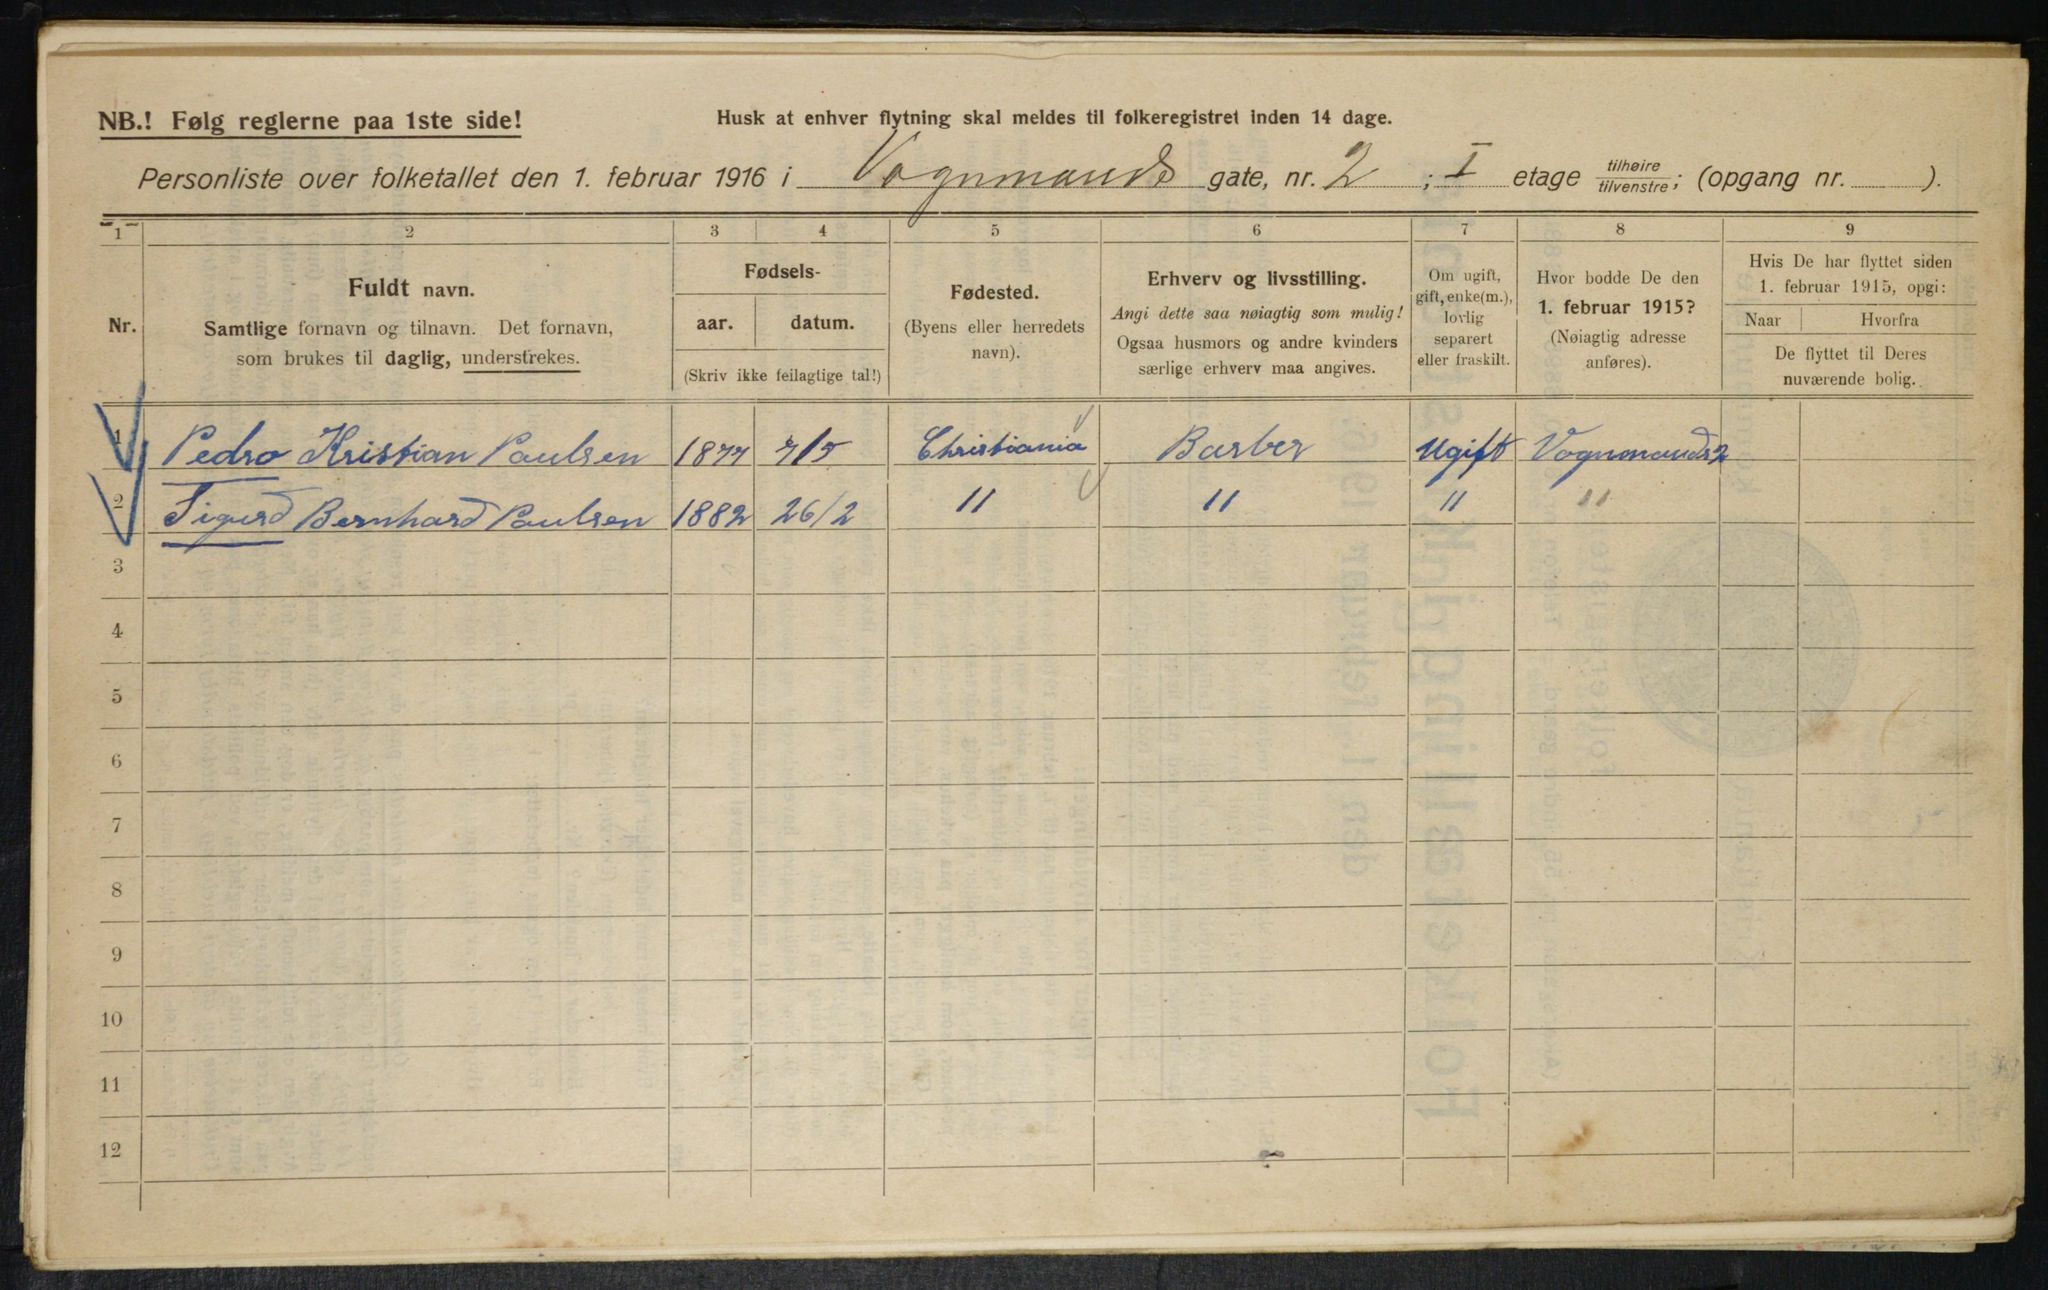 NB.! Følg reglerne paa 1ste side!
Husk at enhver flytning skal meldes til folkeregistret inden 14 dage.
Personliste over folketallet den 1. februar 1916 i Vognmands gate, nr. 2 ; I etage tilhøire tilvenstre; (opgang nr. ).
1 2 3 4 5 6 7 8 9
Nr.
Fuldt navn.
Samtlige fornavn og tilnavn. Det fornavn,
som brukes til daglig, understrekes.
Fødsels-
aar. datum.
(Skriv ikke feilagtige tal!)
Fødested.
(Byens eller herredets
navn).
Erhverv og livsstilling.
Angi dette saa nøiagtig som mulig!
Ogsaa husmors og andre kvinders
særlige erhverv maa angives.
Om ugift,
gift, enke(m.),
lovlig
separert
eller fraskilt.
Hvor bodde De den
1. februar 1915?
(Nøiagtig adresse
anføres).
Hvis De har flyttet siden
1. februar 1915, opgi:
Naar Hvorfra
De flyttet til Deres
nuværende bolig.
1 Pedro Kristian Paulsen 1877 7/5 Christiania Barber Ugift Vognmands 2
2 Sigurd Bernhard Paulsen 1882 26/2 " " " "
3
4
5
6
7
8
9
10
11
12